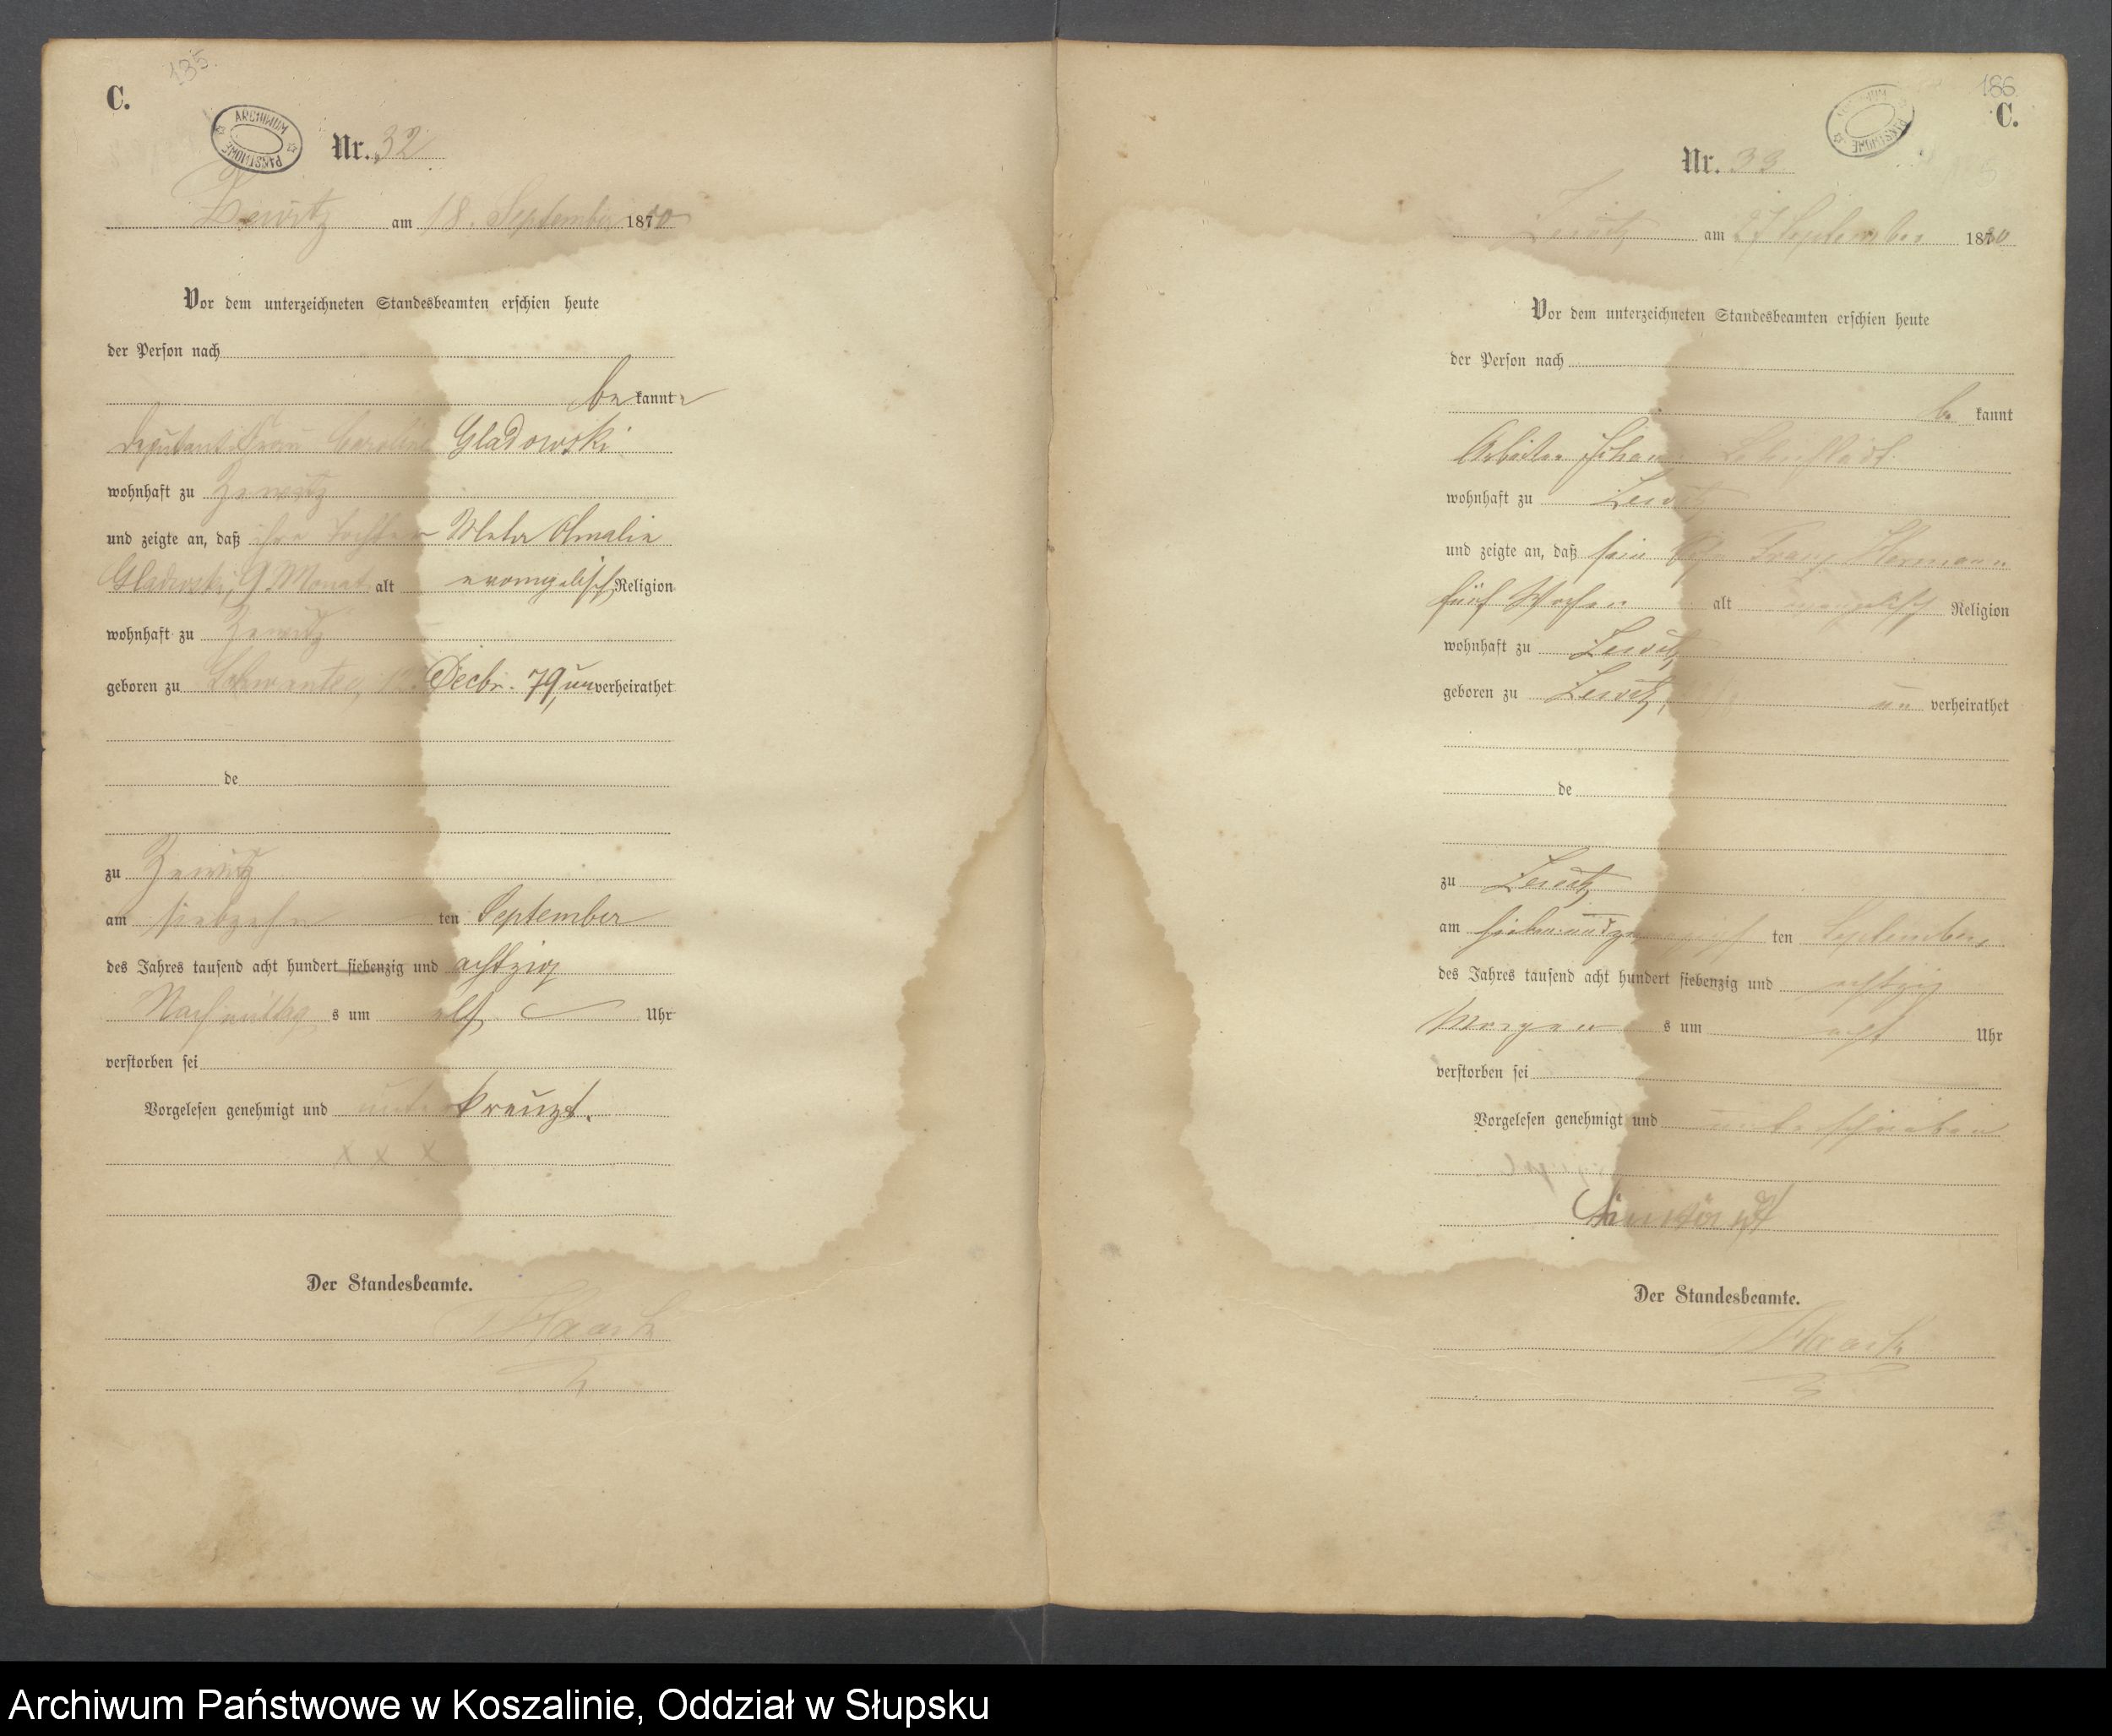 135.
C.
ARCHIWUM PAŃSTWOWE
Nr. 32
Zewitz am 18. September 1880
Vor dem unterzeichneten Standesbeamten erschien heute
der Person nach
bekannte
Deputant Frau Caroline Gladowski
wohnhaft zu Zewitz
und zeigte an, daß ihre Tochter Meta Amalie
Gladowski, 9 Monat alt evangelisch Religion
wohnhaft zu Zewitz
geboren zu Decbr. 79, unverheirathet
de
zu Zewitz
am siebzehn ten September
des Jahres tausend acht hundert siebenzig und achtzig
Nachmittag s um elf Uhr
verstorben sei
Vorgelesen genehmigt und unterkreuzt.
x x x
Der Standesbeamte.
Haack
186
C.
ARCHIWUM PAŃSTWOWE
Nr. 33
Zewitz am 27 September 1880
Vor dem unterzeichneten Standesbeamten erschien heute
der Person nach
be kannt
Arbeiter Johann
wohnhaft zu Zewitz
und zeigte an, daß sein Sohn Franz Hermann
fünf Wochen alt evangelisch Religion
wohnhaft zu Zewitz
geboren zu Zewitz, un verheirathet
de
zu Zewitz
am siebenundzwanzigsten September
des Jahres tausend acht hundert siebenzig und achtzig
Morgen s um acht Uhr
verstorben sei
Vorgelesen genehmigt und unterschrieben
Der Standesbeamte.
Haack
Archiwum Państwowe w Koszalinie, Oddział w Słupsku